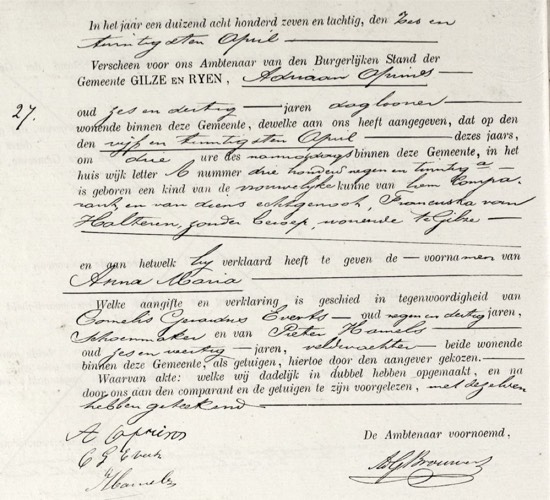 In het jaar een duizend acht honderd zeven en tachtig, den Zes en
twintigsten April
Verscheen voor ons Ambtenaar van den Burgerlijken Stand der
Gemeente GILZE EN RYEN, Adriaan Oprins
27.
oud zes en dertig jaren daglooner
wonende binnen deze Gemeente, dewelke aan ons heeft aangegeven, dat op den
den vijf en twintigsten April dezes jaars,
om drie ure des namiddags binnen deze Gemeente, in het
huis wijk letter A nummer drie honderd negen en twintig a
is geboren een kind van de vrouwelijke kunne van hem Compa-
rant en van diens echtgenoot, Franciska van
Halteren, zonder beroep, wonende te Gilze
en aan hetwelk hij verklaard heeft te geven de voornamen van
Anna Maria
Welke aangifte en verklaring is geschied in tegenwoordigheid van
Cornelis Gerardus Everts oud negen en dertig jaren,
Schoenmaker en van Pieter Hamels
oud zes en veertig jaren, veldwachter beide wonende
binnen deze Gemeente, als getuigen, hiertoe door den aangever gekozen.
Waarvan akte: welke wij dadelijk in dubbel hebben opgemaakt, en na
door ons aan den comparant en de getuigen te zijn voorgelezen, met dezelven
hebben geteekend
A Oprins
C G Everts
P Hamels
De Ambtenaar voornoemd,
Brouwers